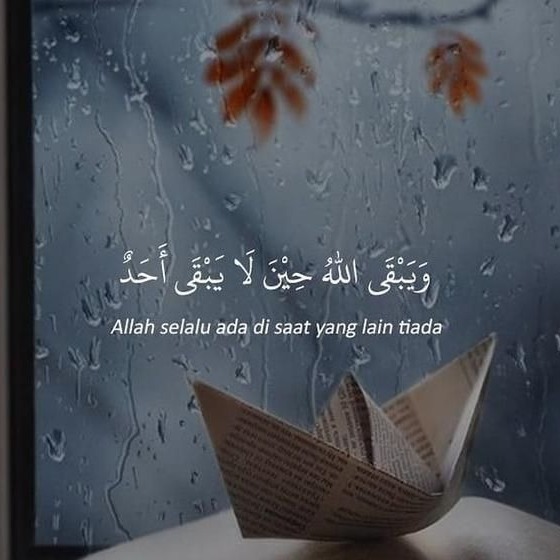 وَيَبْقَى اللهُ حِيْنَ لَا يَبْقَى أَحَدٌ
Allah selalu ada di saat yang lain tiada